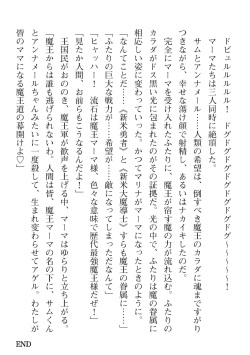 ドビュルルルル！　ドグドグドグドグドグドグ〜〜〜〜〜！
マーマたちは三人同時に絶頂した。
サムとアンナメール……人類の希望は、倒すべき魔王のカラダに魂まですがり
つきながら、幸せな蕩け顔で射精し、あるいはナカイキしたのだ。
完全にマーマを受け入れたふたりに、同時に魔王が宿す魔の力が流れ込む。
カラダがドス黒い光に包まれたのがその証拠だ。光の中で、ふたりは魔の眷属に
相応しい姿に変わっていった。かつてマリナがマーマになったときのように。
「なんてことだ……〈新米勇者〉と〈新米大魔導士〉すらも魔王の眷属に……」
「ふたりの巨大な戦力が……希望が……敵になってしまっただなんて」
「ヒャッハー！　流石は魔王マーマ様、色々な意味で歴代最強魔王様だぜ！」
「見たか人間、お前らもこうなるんだよ！」
王国民がおののき、魔王軍が歓声を上げる中、マーマはゆらりと立ち上がる。
「魔王からは誰も逃げられないわ。人間は皆、魔王マーマの名の下に、サムくん
とアンナメールちゃんみたいに一度殺して、生まれ変わらせてアゲル。わたしが
皆のママになる魔王道の幕開けよ♡」
END